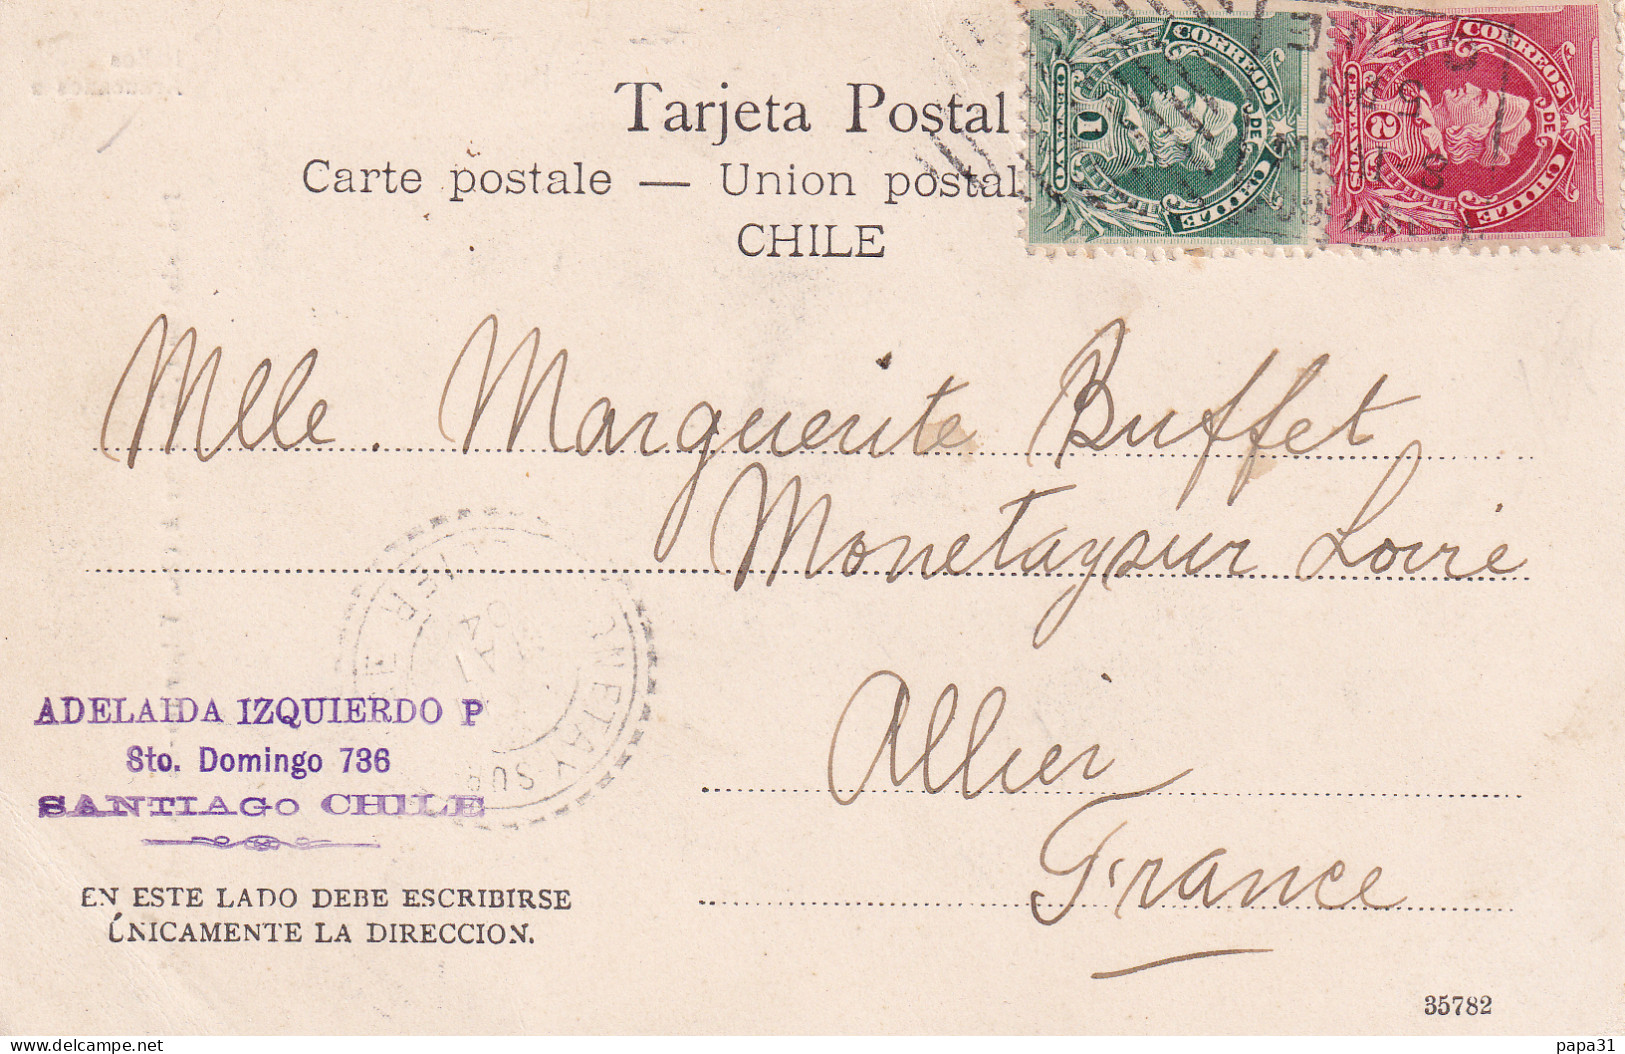 Tarjeta Postal
Carte postale — Union postal
CHILE
CORREOS DE CHILE
1
CENTAVO
CORREOS DE CHILE
2
CENTAVOS
Mlle. Marguerite Buffet
Monetay sur Loire
Allier
France
ADELAIDA IZQUIERDO P
Sto. Domingo 736
SANTIAGO CHILE
EN ESTE LADO DEBE ESCRIBIRSE
ÚNICAMENTE LA DIRECCION.
35782
delcampe.net
papa31